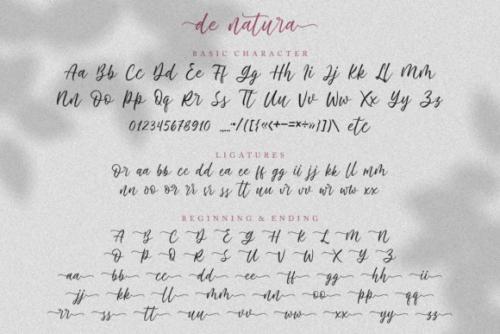 de natura
BASIC CHARACTER
Aa Bb Cc Dd Ee Ff Gg Hh Ii Jj Kk Ll Mm
Nn Oo Pp Qq Rr Ss Tt Uu Vv Ww Xx Yy Zz
012345678910 etc
LIGATURES
Or aa bb cc dd ea ee ff gg ii jj kk ll mm
nn oo or rr ss tt uu vr vv wr ww xx
BEGINNING & ENDING
A B C D E G H K L M N
O P Q R S T U V W X Y Z
aa bb cc dd ee ff gg hh ii
jj kk ll mm nn oo pp qq
rr ss tt uu vv ww xx yy zz